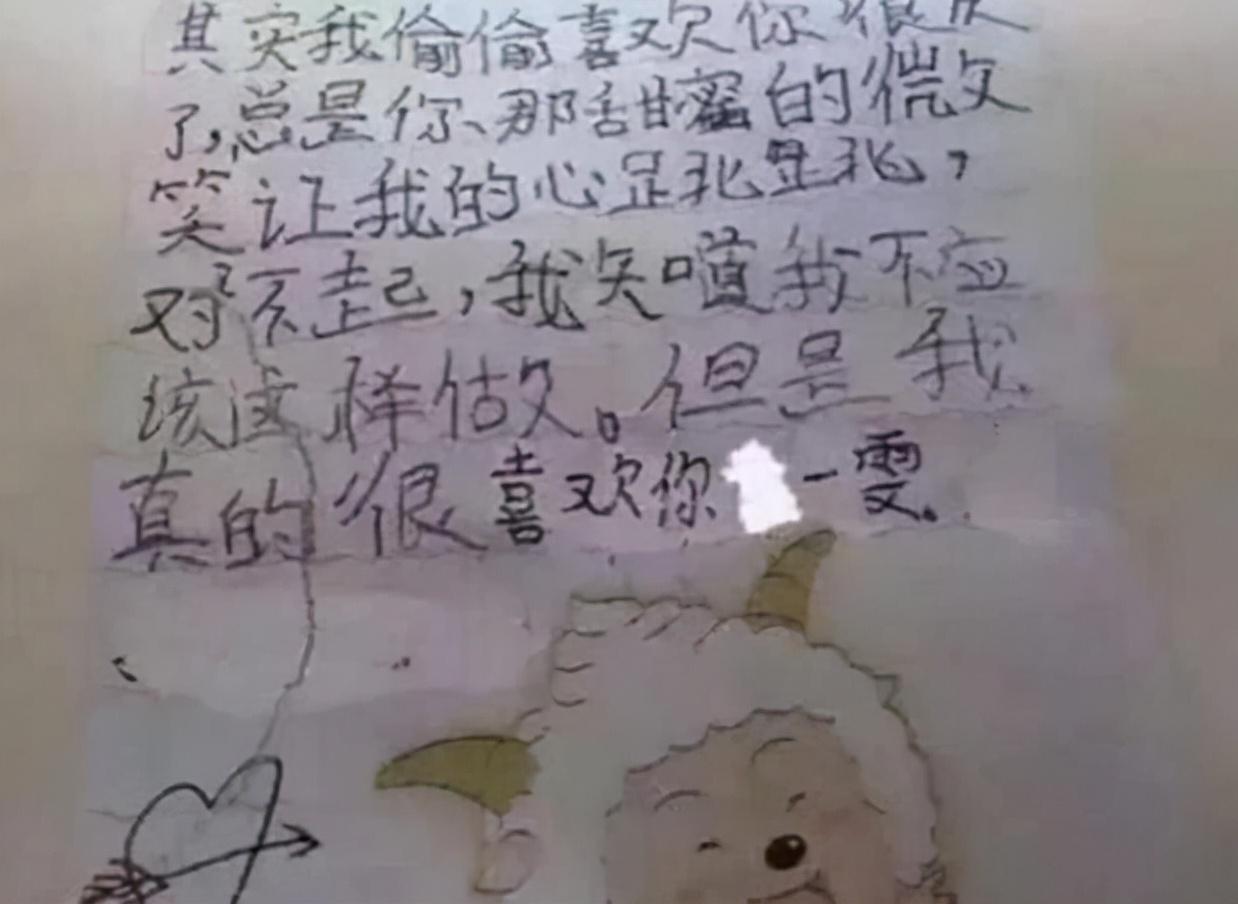 其实我偷偷喜欢你很久
了,总是你、那甜蜜的微
笑让我的心跳跳,
对不起,我知道我不应
该这样做。但是我
真的很喜欢你 一雯。